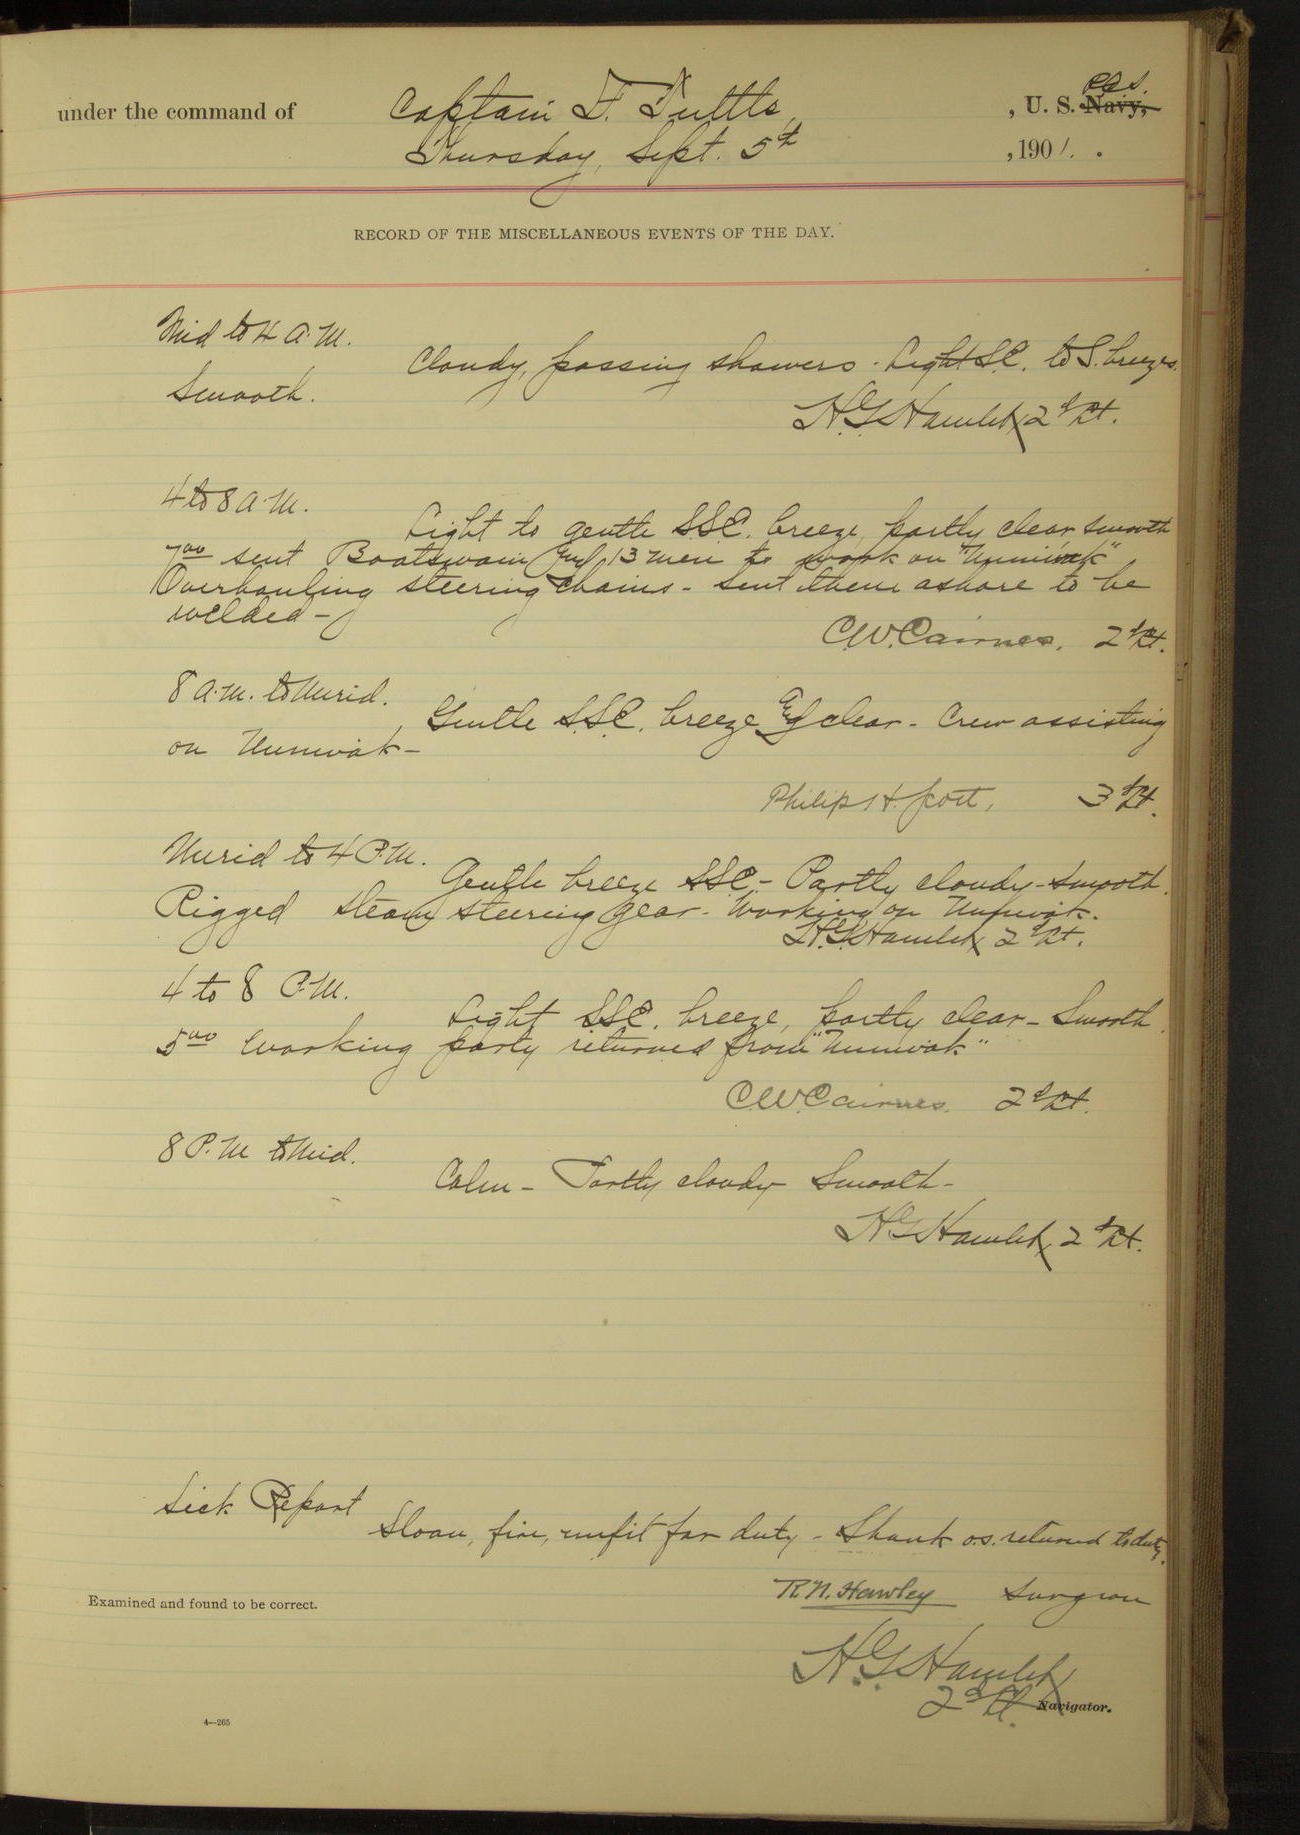 under the command of Captain F. Tuttle, U. S. Navy, R.C.S.
Thursday, Sept. 5th, 1901.
RECORD OF THE MISCELLANEOUS EVENTS OF THE DAY.
Mid to 4 A.M.
Cloudy, passing showers. Light S.E. to S. breezes.
Smooth.
H.G. Hamlet 2d Lt.
4 to 8 A.M.
Light to gentle SSE. breeze, partly clear, smooth
7:00 sent Boatswain and 13 men to work on "Nunivak"
Overhauling steering chains - sent them ashore to be
welded -
C.W. Cairnes. 2d Lt.
8 A.M. to Merid.
Gentle S.S.E. breeze clear - Crew assisting
on Nunivak -
Philip H. Scott, 3d Lt.
Merid to 4 P.M.
Gentle breeze SSE - Partly cloudy - smooth.
Rigged steam steering gear - Working on Nunivak.
H.G. Hamlet 2d Lt.
4 to 8 P.M.
Light SSE. breeze, partly clear - Smooth.
5:00 Working party returned from "Nunivak"
C.W. Cairnes. 2d Lt.
8 P.M to Mid.
Calm - Partly cloudy Smooth -
H G Hamlet 2d Lt.
Sick Report
Sloan, fire, unfit for duty - Shank o.s. returned to duty.
R.N. Hawley Surgeon
Examined and found to be correct.
H.G. Hamlet
2d Lt. Navigator.
4—265